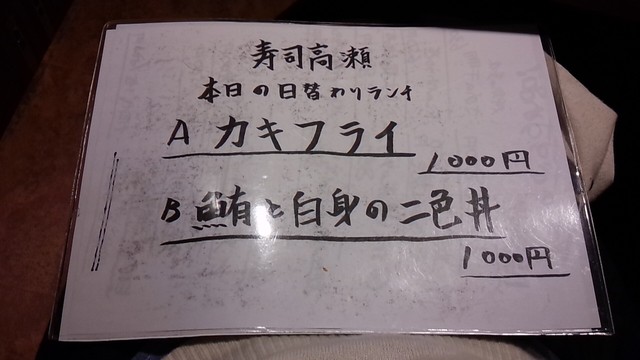 寿司高瀬
本日の日替わりランチ
A カキフライ
1000円
B 鮪と白身の二色丼
1000円